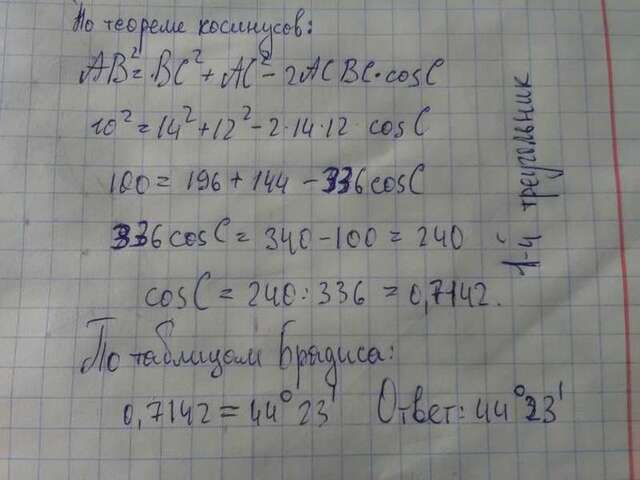 По теореме косинусов:
AB²=BC²+AC²-2ACBC·cosC
10²=14²+12²-2·14·12·cosC
100=196+144-336cosC
336cosC=340-100=240
cosC=240:336=0,7142.
По таблицам Брадиса:
0,7142=44°23' Ответ:44°23'
1-й треугольник